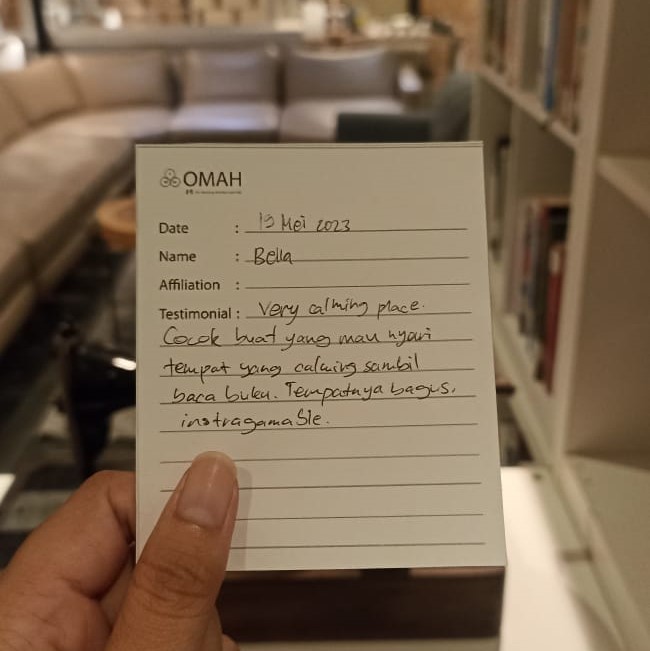 OMAH
Date : 19 Mei 2023
Name : Bella
Affiliation :
Testimonial : Very calming place.
Cocok buat yang mau nyari
tempat yang calming sambil
baca buku. Tempatnya bagus,
instragamable.